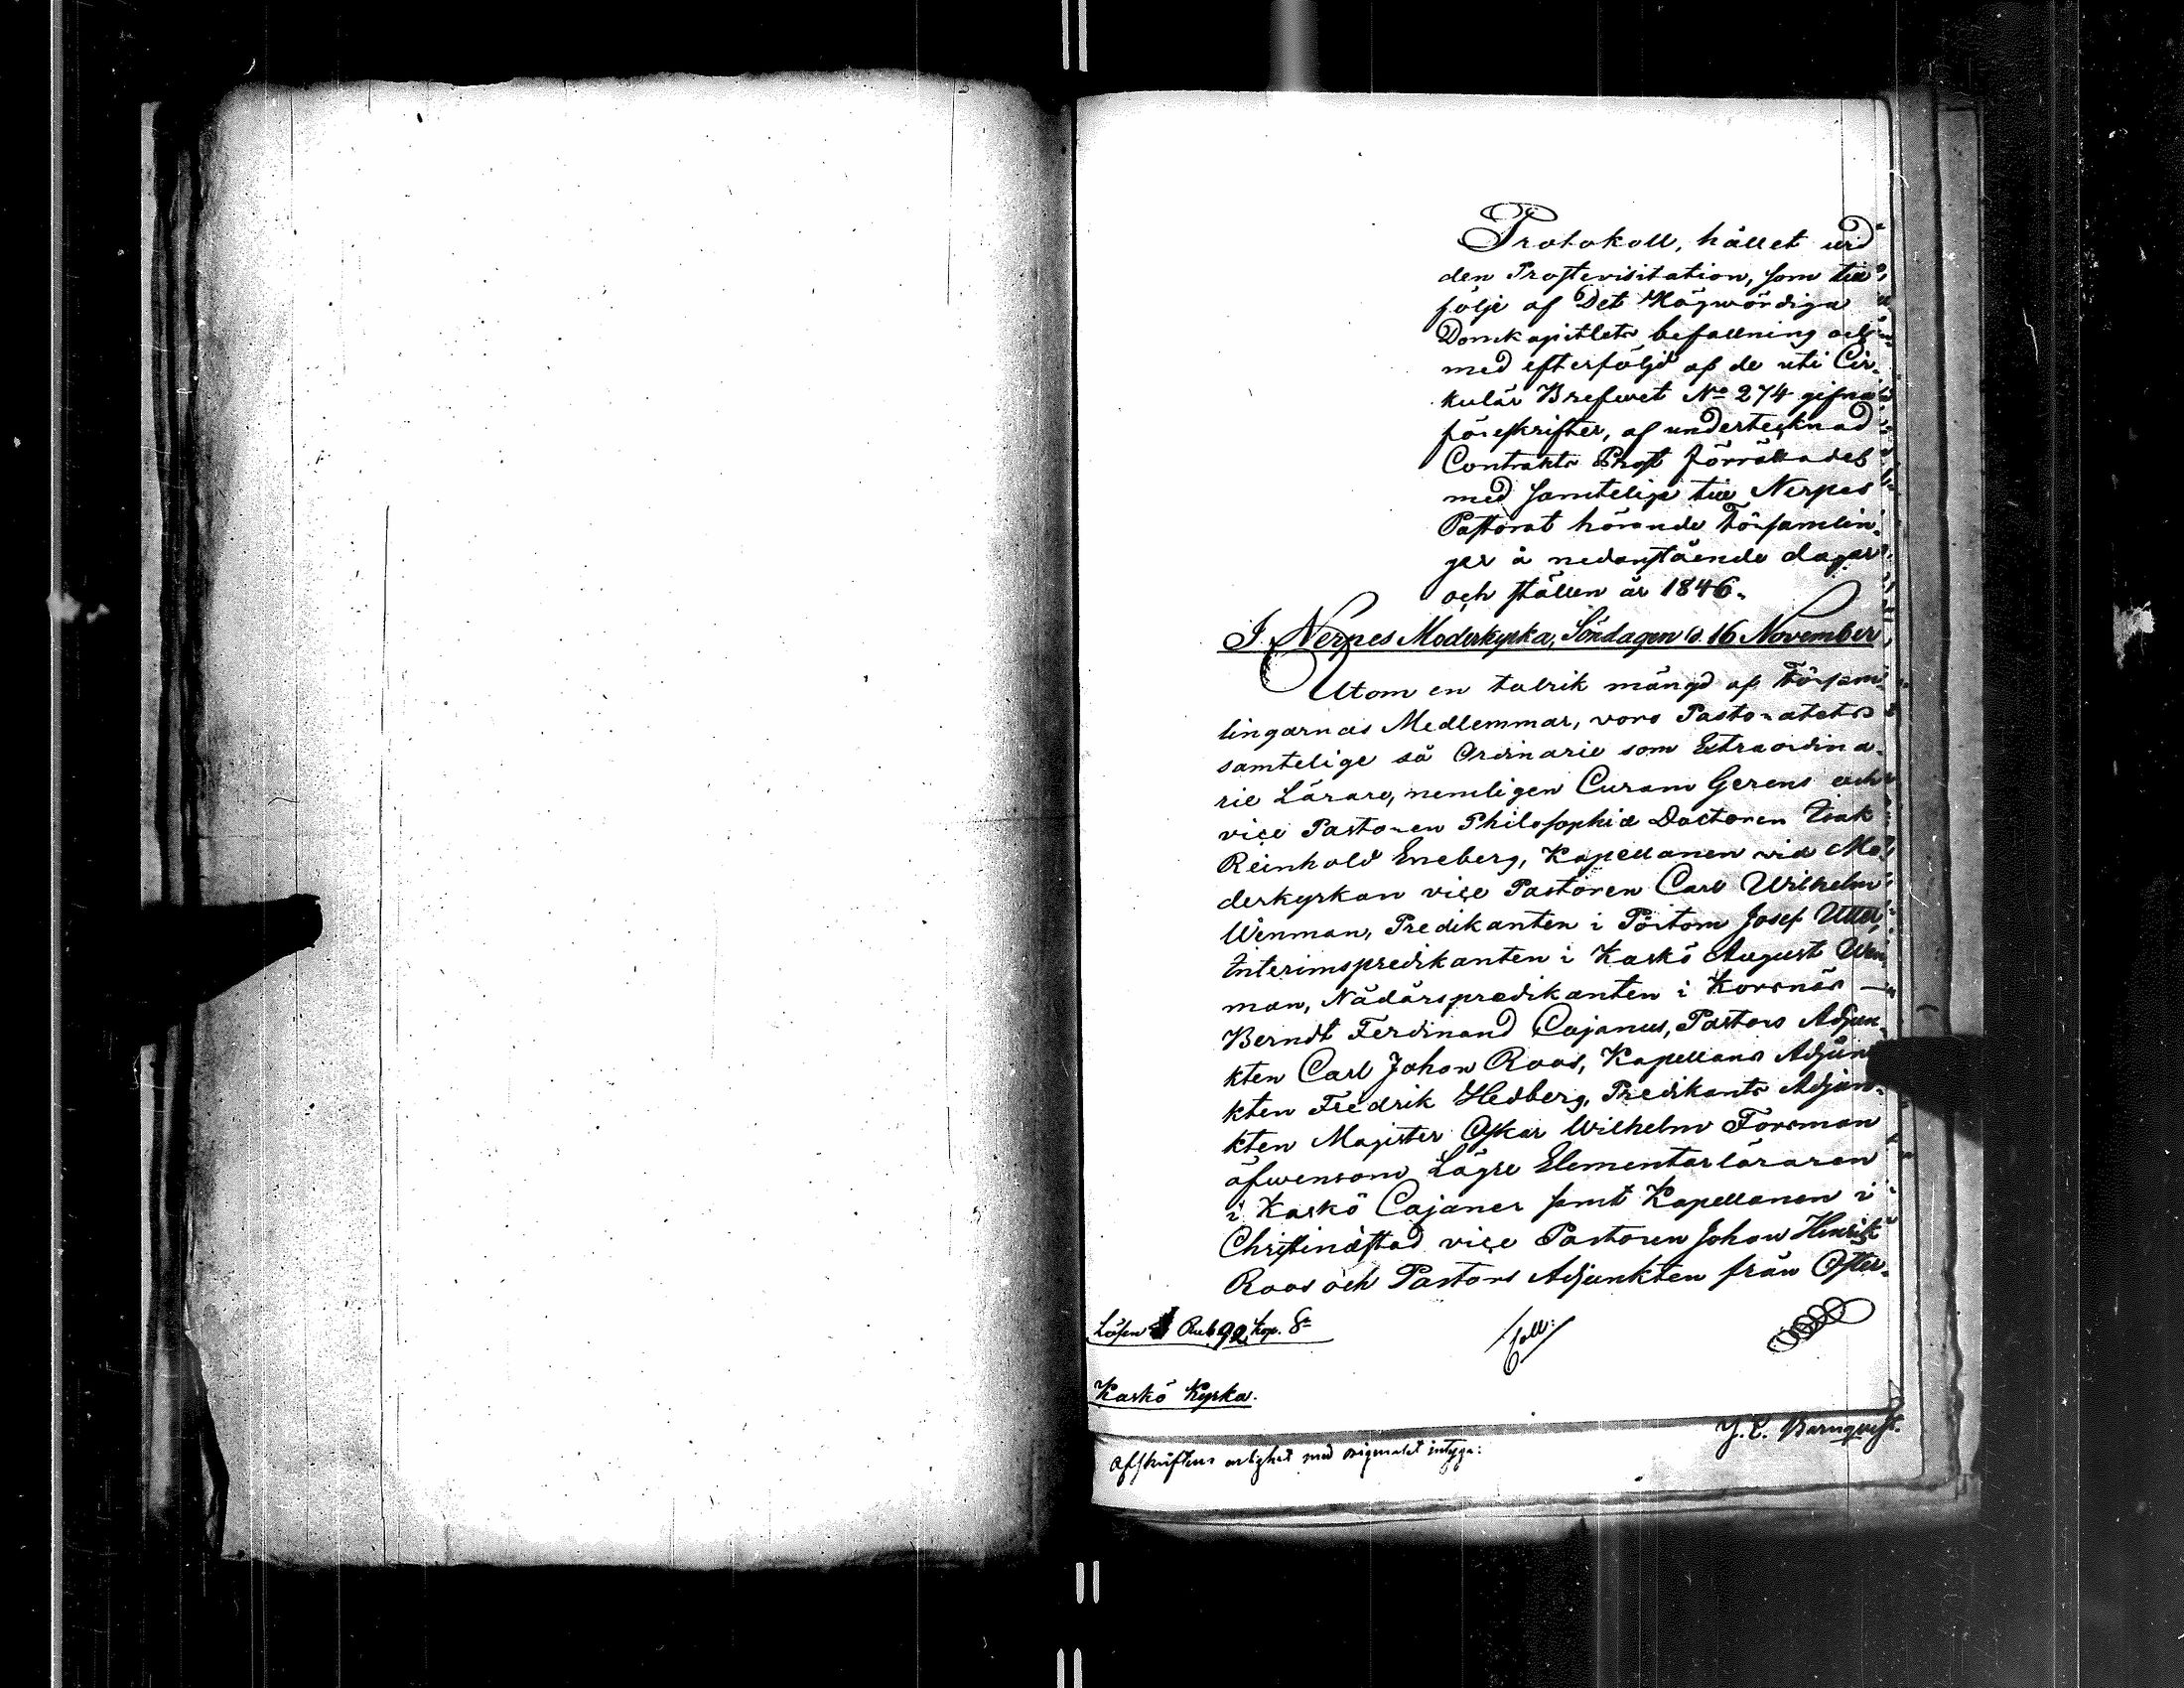 Protokoll, hållet wid
den Prostevisitation, som till
följe af Det Högwördiga
Domkapitlets befallning och
med efterföljd af de uti Cir-
kulär Brefwet No 274 gifna
föreskrifter, af undertecknad
Contrakts Prost förrättades
med samtelige till Nerpes
Pastorat hörande Församlin-
gar å nedanstående dagar
och ställen år 1846.
I Nerpes Moderkyrka, Söndagen d. 16 November
Utom en talrik mängd af Försam-
lingarnas Medlemmar, voro Pastoratets
samtelige så Ordinarie som Extraordina-
rie Lärare, nemligen Curam Gerens och
vice Pastoren Philosophiæ Doctoren Isak
Reinhold Eneberg, Kapellanen vid Mo-
derkyrkan vice Pastoren Carl Wilhelm
Wenman, Predikanten i Pörtom Josef Utter,
Interimspredikanten i Kaskö August Wen-
man, Nådårspredikanten i Korsnäs —
Berndt Ferdinand Cajanus, Pastors Adjun-
kten Carl Johan Roos, Kapellans Adjun-
kten Fredrik Hedberg, Predikants Adjun-
kten Magister Oskar Wilhelm Forsman
äfwensom Lägre Elementarläraren
i Kaskö Cajaner samt Kapellanen i
Christinæstad vice Pastoren Johan Henrik
Roos och Pastors Adjunkten från Öfter-
Lösen Rub. 92 Kop. Sr
Coll:
Kaskö Kyrka.
J. E. Barnquist.
Afskriftens enlighet med originalet intyga: